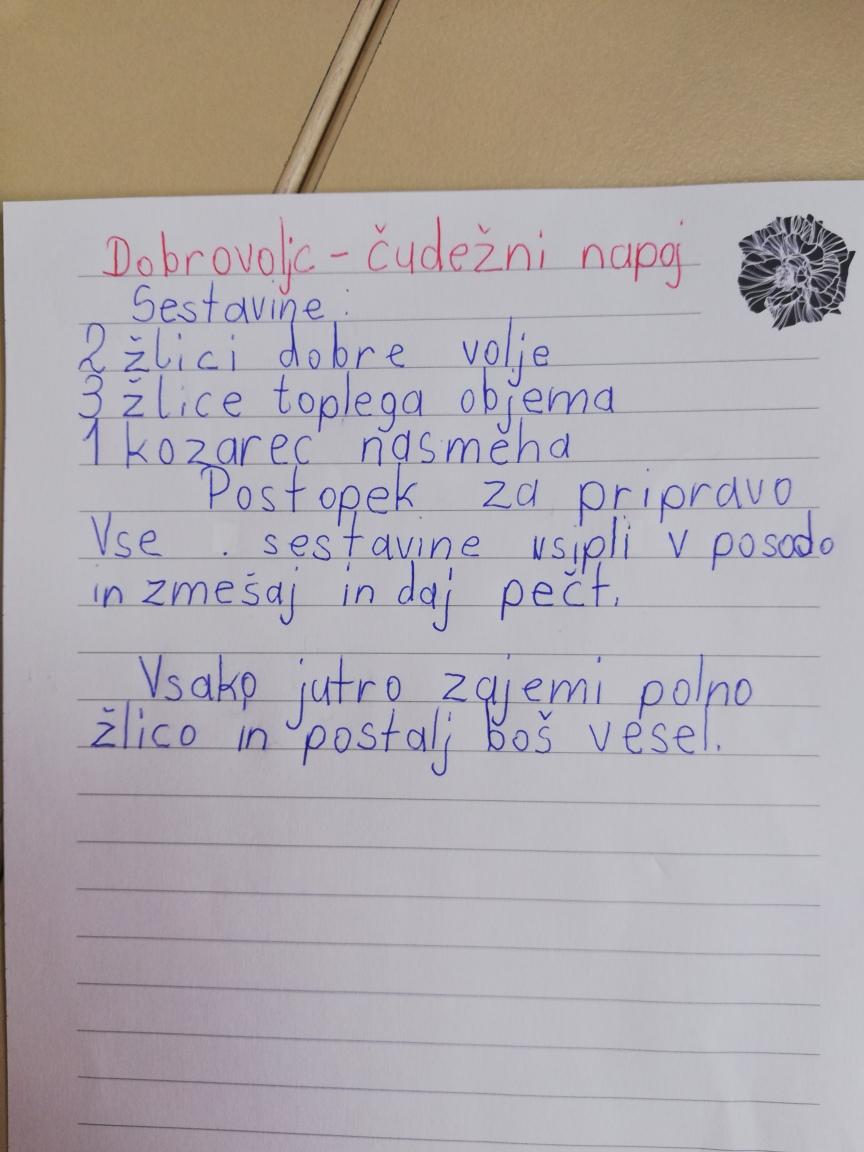 Dobrovoljc - čudežni napoj
Sestavine:
2 žlici dobre volje
3 žlice toplega objema
1 kozarec nasmeha
Postopek za pripravo
Vse . sestavine vsipli v posodo
in zmešaj in daj pečt.
Vsako jutro zajemi polno
žlico in postalj boš vesel.